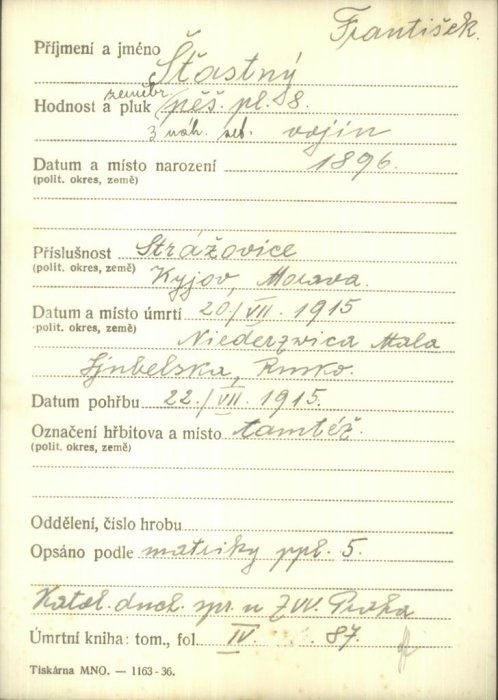 František.
Příjmení a jméno Šťastný
zeměbr.
Hodnost a pluk pěš. pl. 8.
3 náh. set. vojín
Datum a místo narození 1896.
(polit. okres, země)
Příslušnost Strážovice
(polit. okres, země) Kyjov, Morava.
Datum a místo úmrtí 20/VII. 1915
(polit. okres, země) Niederzwica Mala
Ljubelska, Rusko.
Datum pohřbu 22./VII. 1915.
Označení hřbitova a místo tamtéž.
(polit. okres, země)
Oddělení, číslo hrobu
Opsáno podle matriky ppl. 5.
Katol. duch. spr. u ZVV. Praha
Úmrtní kniha: tom., fol. IV 87.
Tiskárna MNO. — 1163-36.